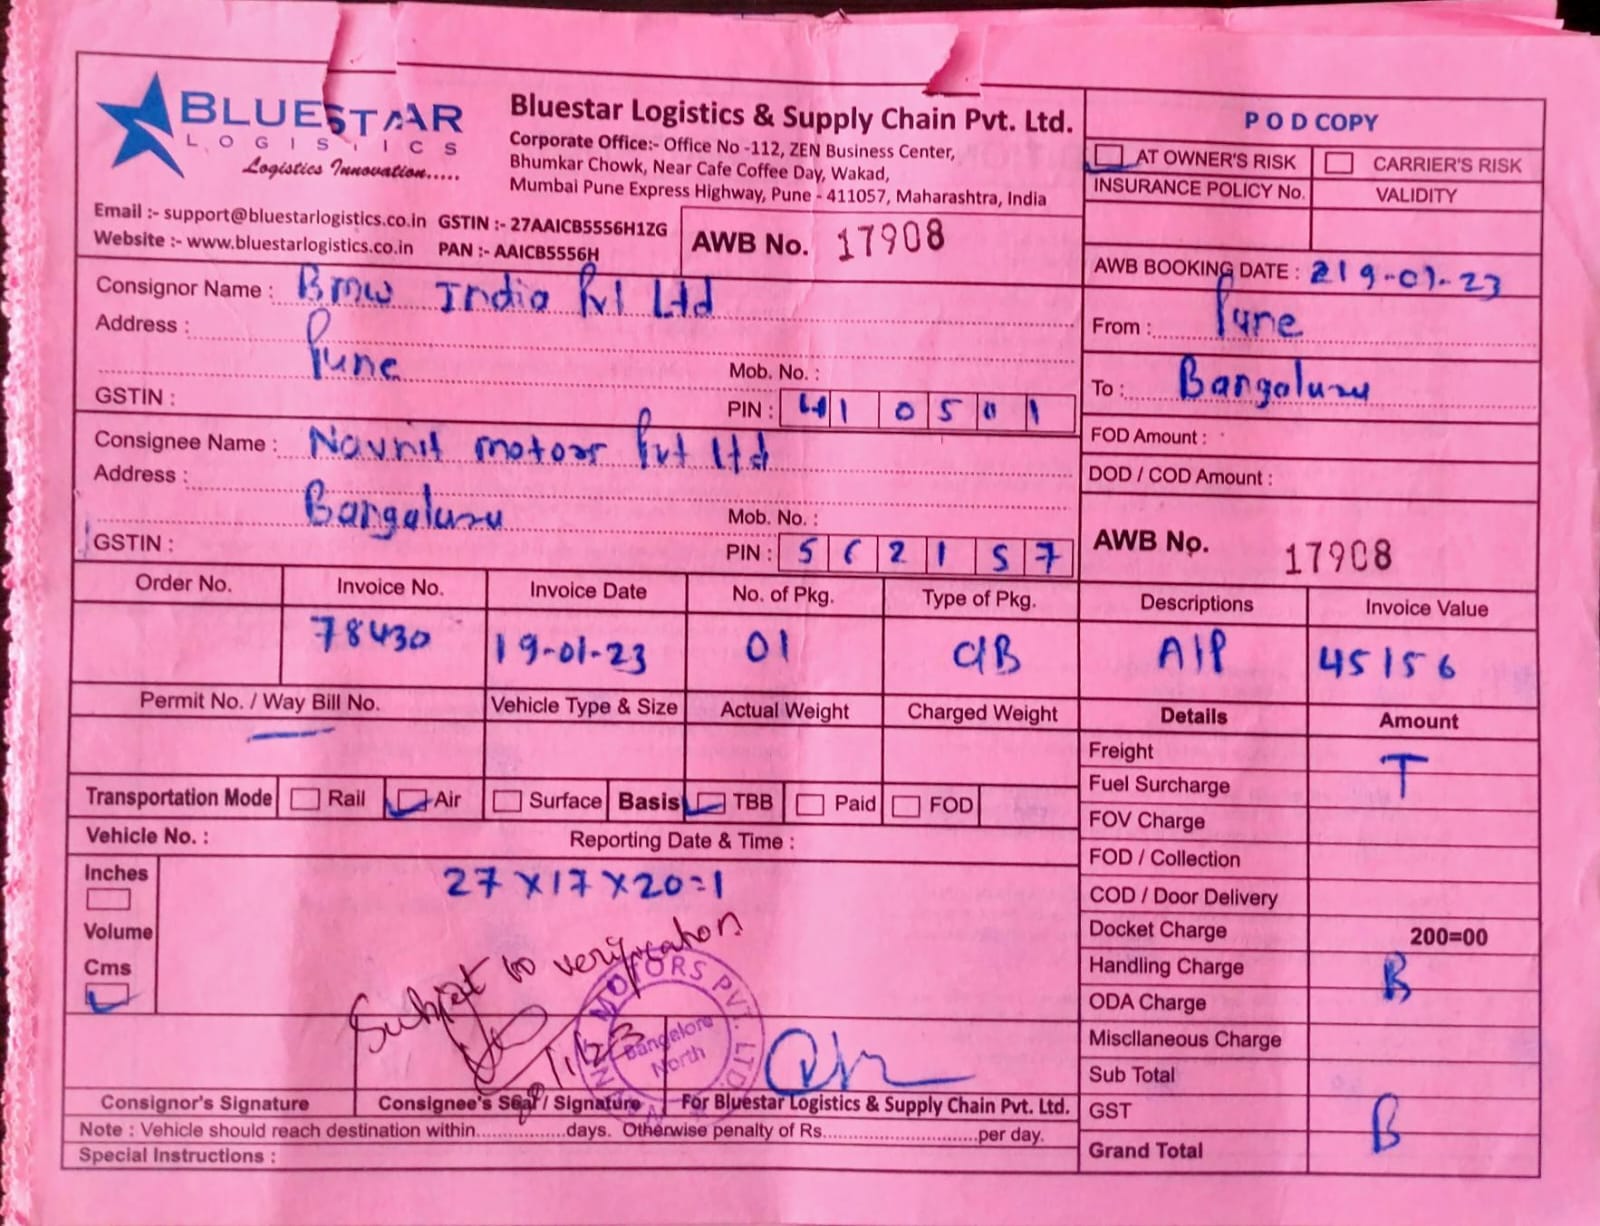 BLUESTAR
LOGISTICS
Logistics Innovation.....
Bluestar Logistics & Supply Chain Pvt. Ltd.
Corporate Office:- Office No -112, ZEN Business Center,
Bhumkar Chowk, Near Cafe Coffee Day, Wakad,
Mumbai Pune Express Highway, Pune - 411057, Maharashtra, India
Email :- support@bluestarlogistics.co.in GSTIN :- 27AAICB5556H1ZG
Website :- www.bluestarlogistics.co.in PAN :- AAICB5556H
AWB No. 17908
POD COPY
AT OWNER'S RISK CARRIER'S RISK
INSURANCE POLICY No. VALIDITY
AWB BOOKING DATE : 19-01-23
From : Pune
To : Bangaluru
FOD Amount :
DOD / COD Amount :
AWB No. 17908
Consignor Name : Bmw India Pvt Ltd
Address :
Pune Mob. No. :
GSTIN : PIN : 410501
Consignee Name : Navnit motors Pvt ltd
Address :
Bangaluru Mob. No. :
GSTIN : PIN : 562157
Order No. Invoice No. Invoice Date No. of Pkg. Type of Pkg. Descriptions Invoice Value
78430 19-01-23 01 C/B A/P 45156
Permit No. / Way Bill No. Vehicle Type & Size Actual Weight Charged Weight Details Amount
Transportation Mode Rail Air Surface Basis TBB Paid FOD
Vehicle No. : Reporting Date & Time :
Inches
Volume
Cms
27 x 17 x 20 = 1
Subject to verification
MOTORS PVT. LTD.
Bangalore
North
Freight
T
Fuel Surcharge
FOV Charge
FOD / Collection
COD / Door Delivery
Docket Charge 200=00
Handling Charge
B
ODA Charge
Miscllaneous Charge
Sub Total
GST
B
Grand Total
Consignor's Signature Consignee's Seal / Signature For Bluestar Logistics & Supply Chain Pvt. Ltd.
Note : Vehicle should reach destination within..................days. Otherwise penalty of Rs.............................per day.
Special Instructions :